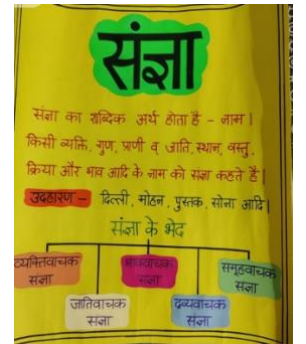 संज्ञा
संज्ञा का शब्दिक अर्थ होता है - नाम।
किसी व्यक्ति, गुण, प्राणी व जाति, स्थान, वस्तु,
क्रिया और भाव आदि के नाम को संज्ञा कहते हैं।
उदहारण - दिल्ली, मोहन, पुस्तक, सोना आदि।
संज्ञा के भेद
व्यक्तिवाचक संज्ञा
जातिवाचक संज्ञा
भाववाचक संज्ञा
द्रव्यवाचक संज्ञा
समूहवाचक संज्ञा